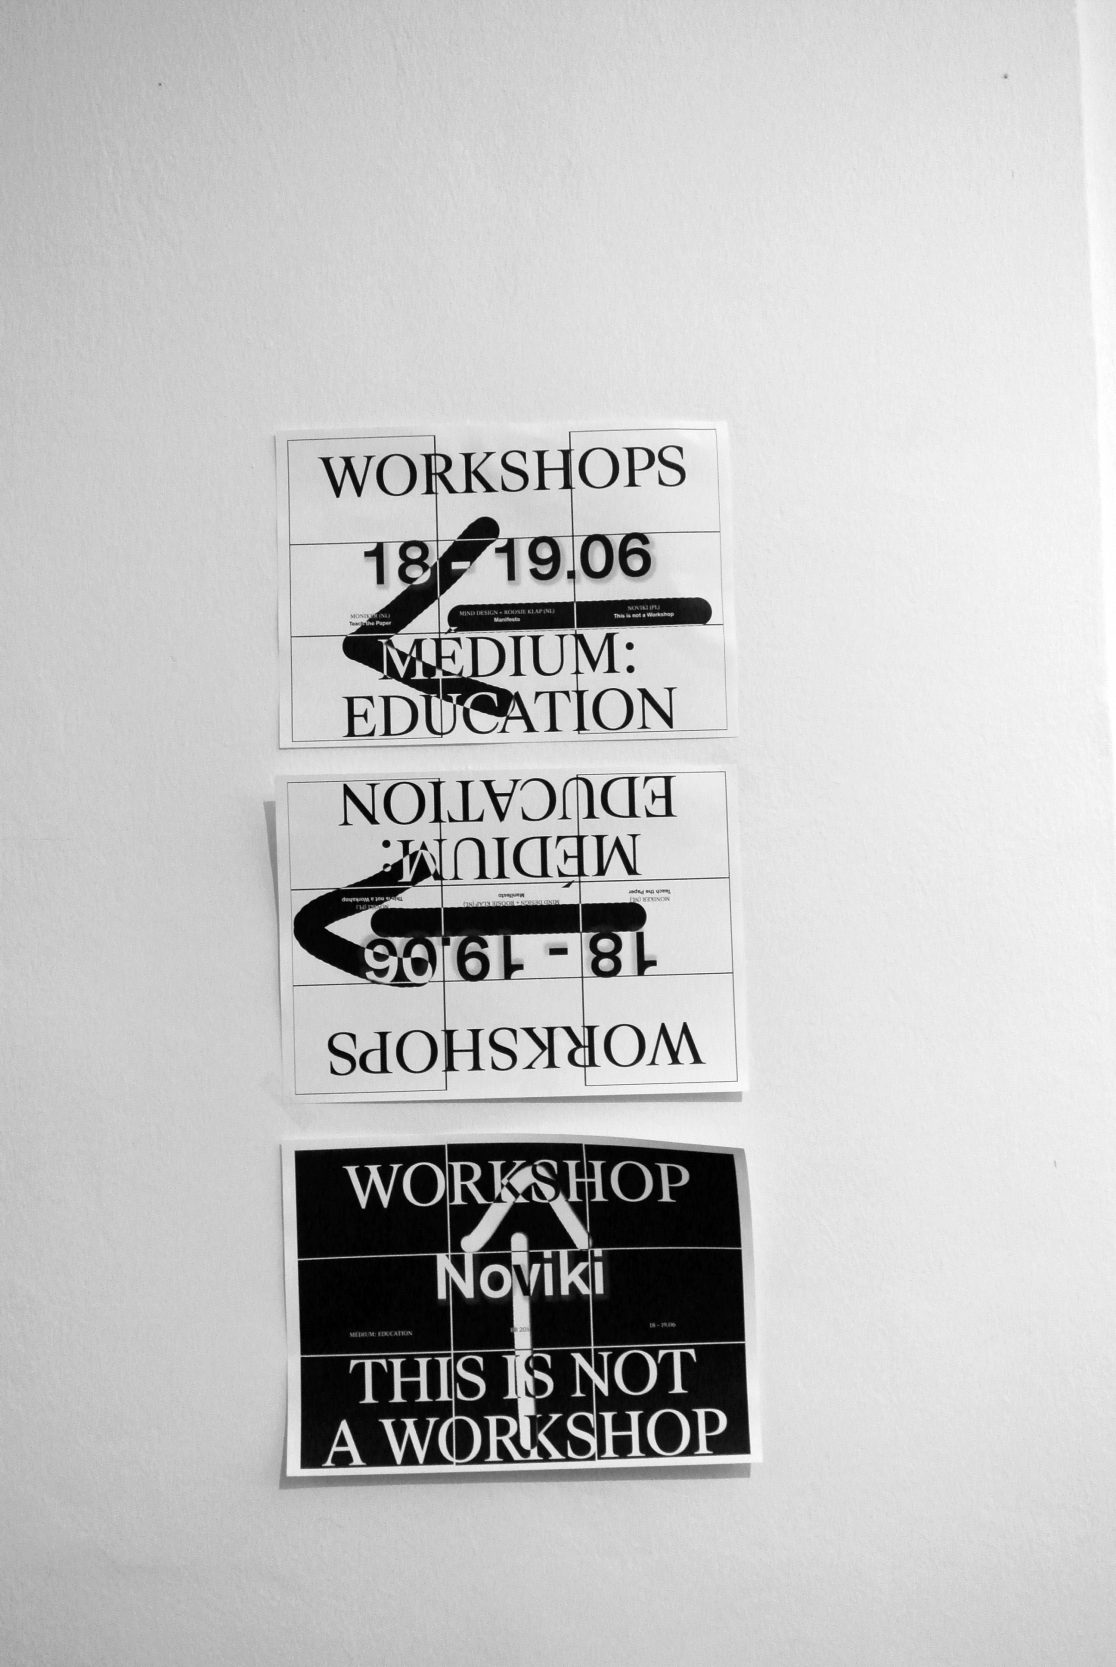 WORKSHOPS
18 - 19.06
MONIKER (NL)
Teach the Paper
MIND DESIGN + ROOSJE KLAP (NL)
Manifesto
NOVIKI (PL)
This is not a Workshop
MÉDIUM:
EDUCATION
WORKSHOPS
18 - 19.06
MONIKER (NL)
Teach the Paper
MIND DESIGN + ROOSJE KLAP (NL)
Manifesto
NOVIKI (PL)
This is not a Workshop
MÉDIUM:
EDUCATION
WORKSHOP
Noviki
MÉDIUM: EDUCATION
18 - 19.06
THIS IS NOT
A WORKSHOP